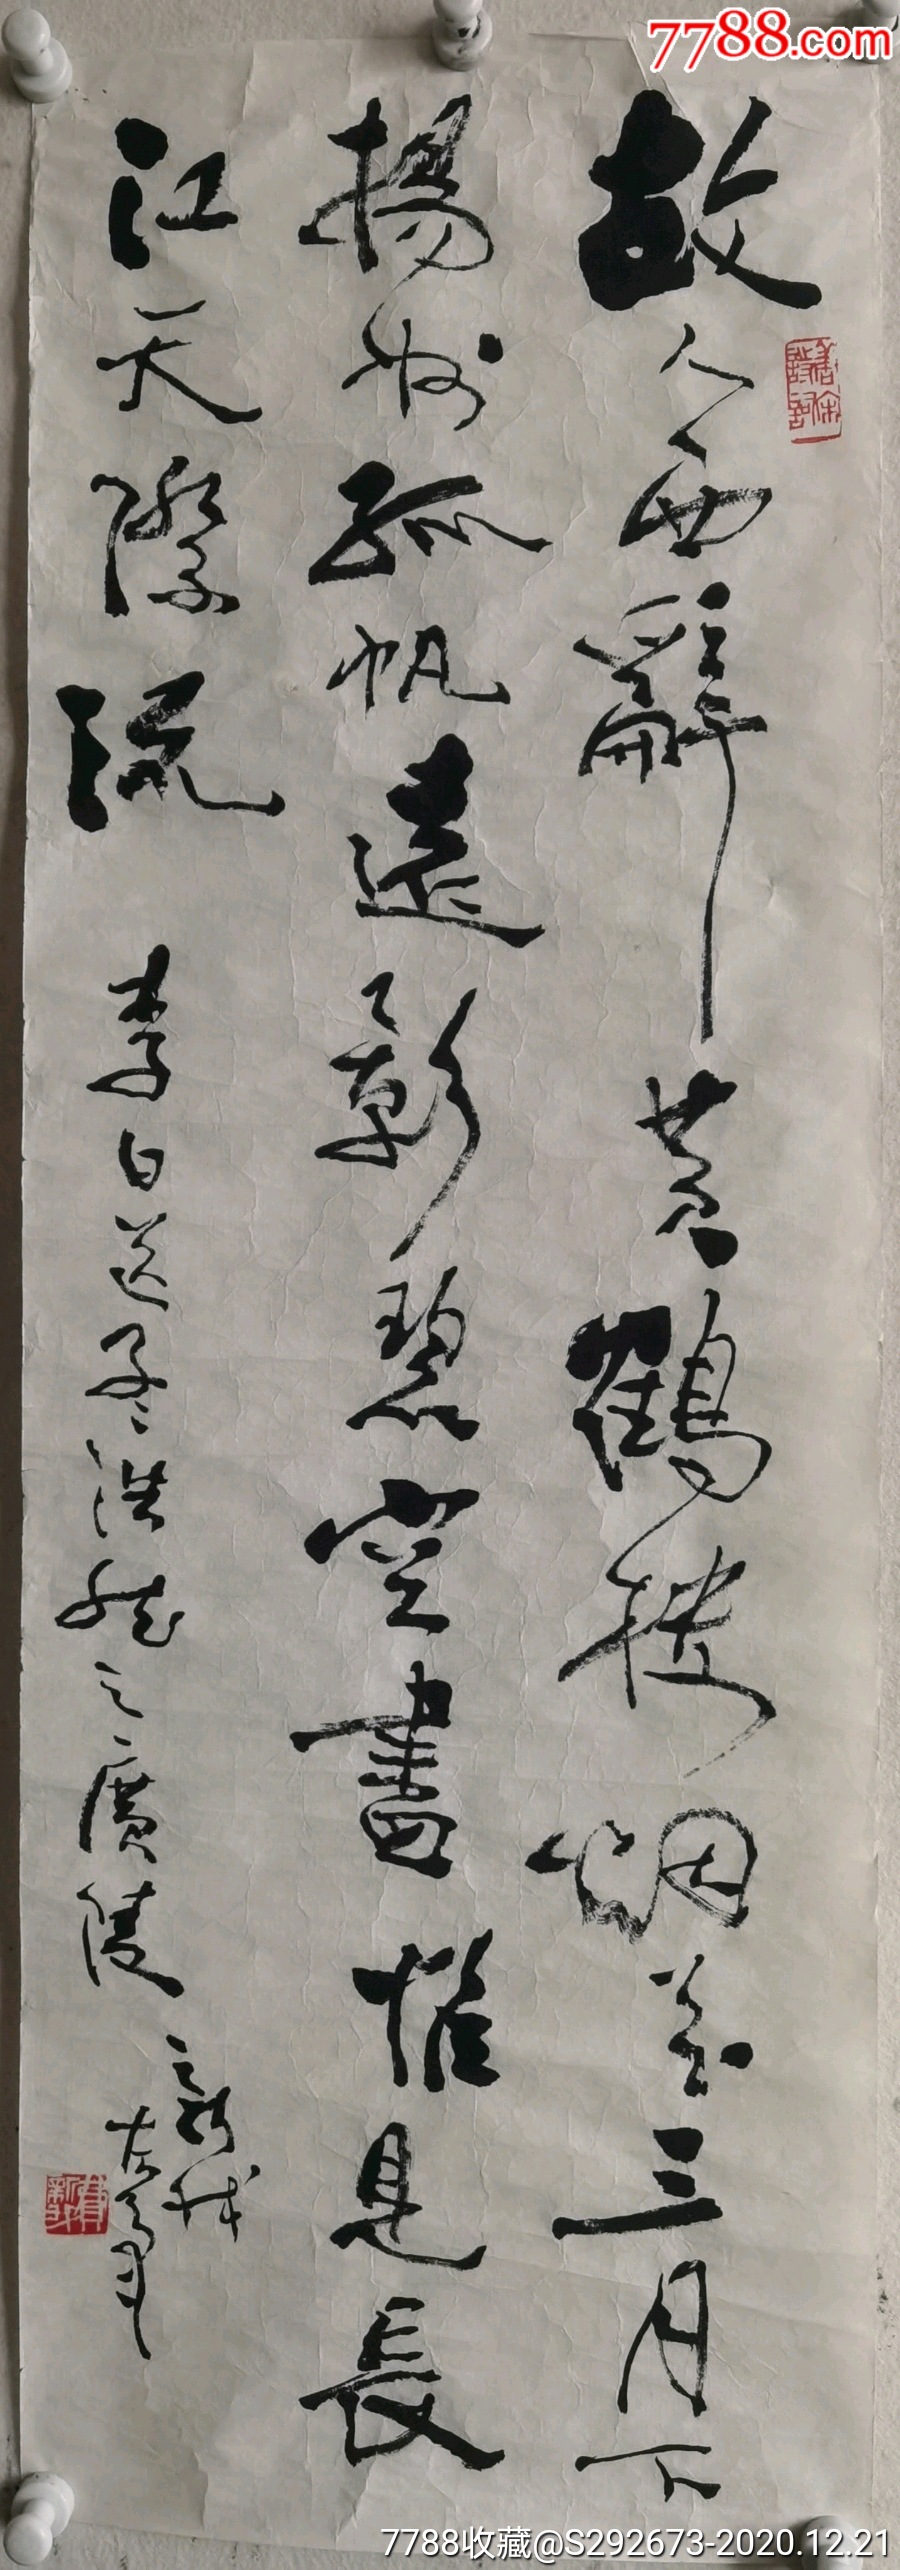 7788.com
故人西辭黄鶴樓烟花三月下
揚州孤帆遠影碧空盡惟是長
江天際流
李白送孟浩然之廣陵
7788收藏@S292673-2020.12.21